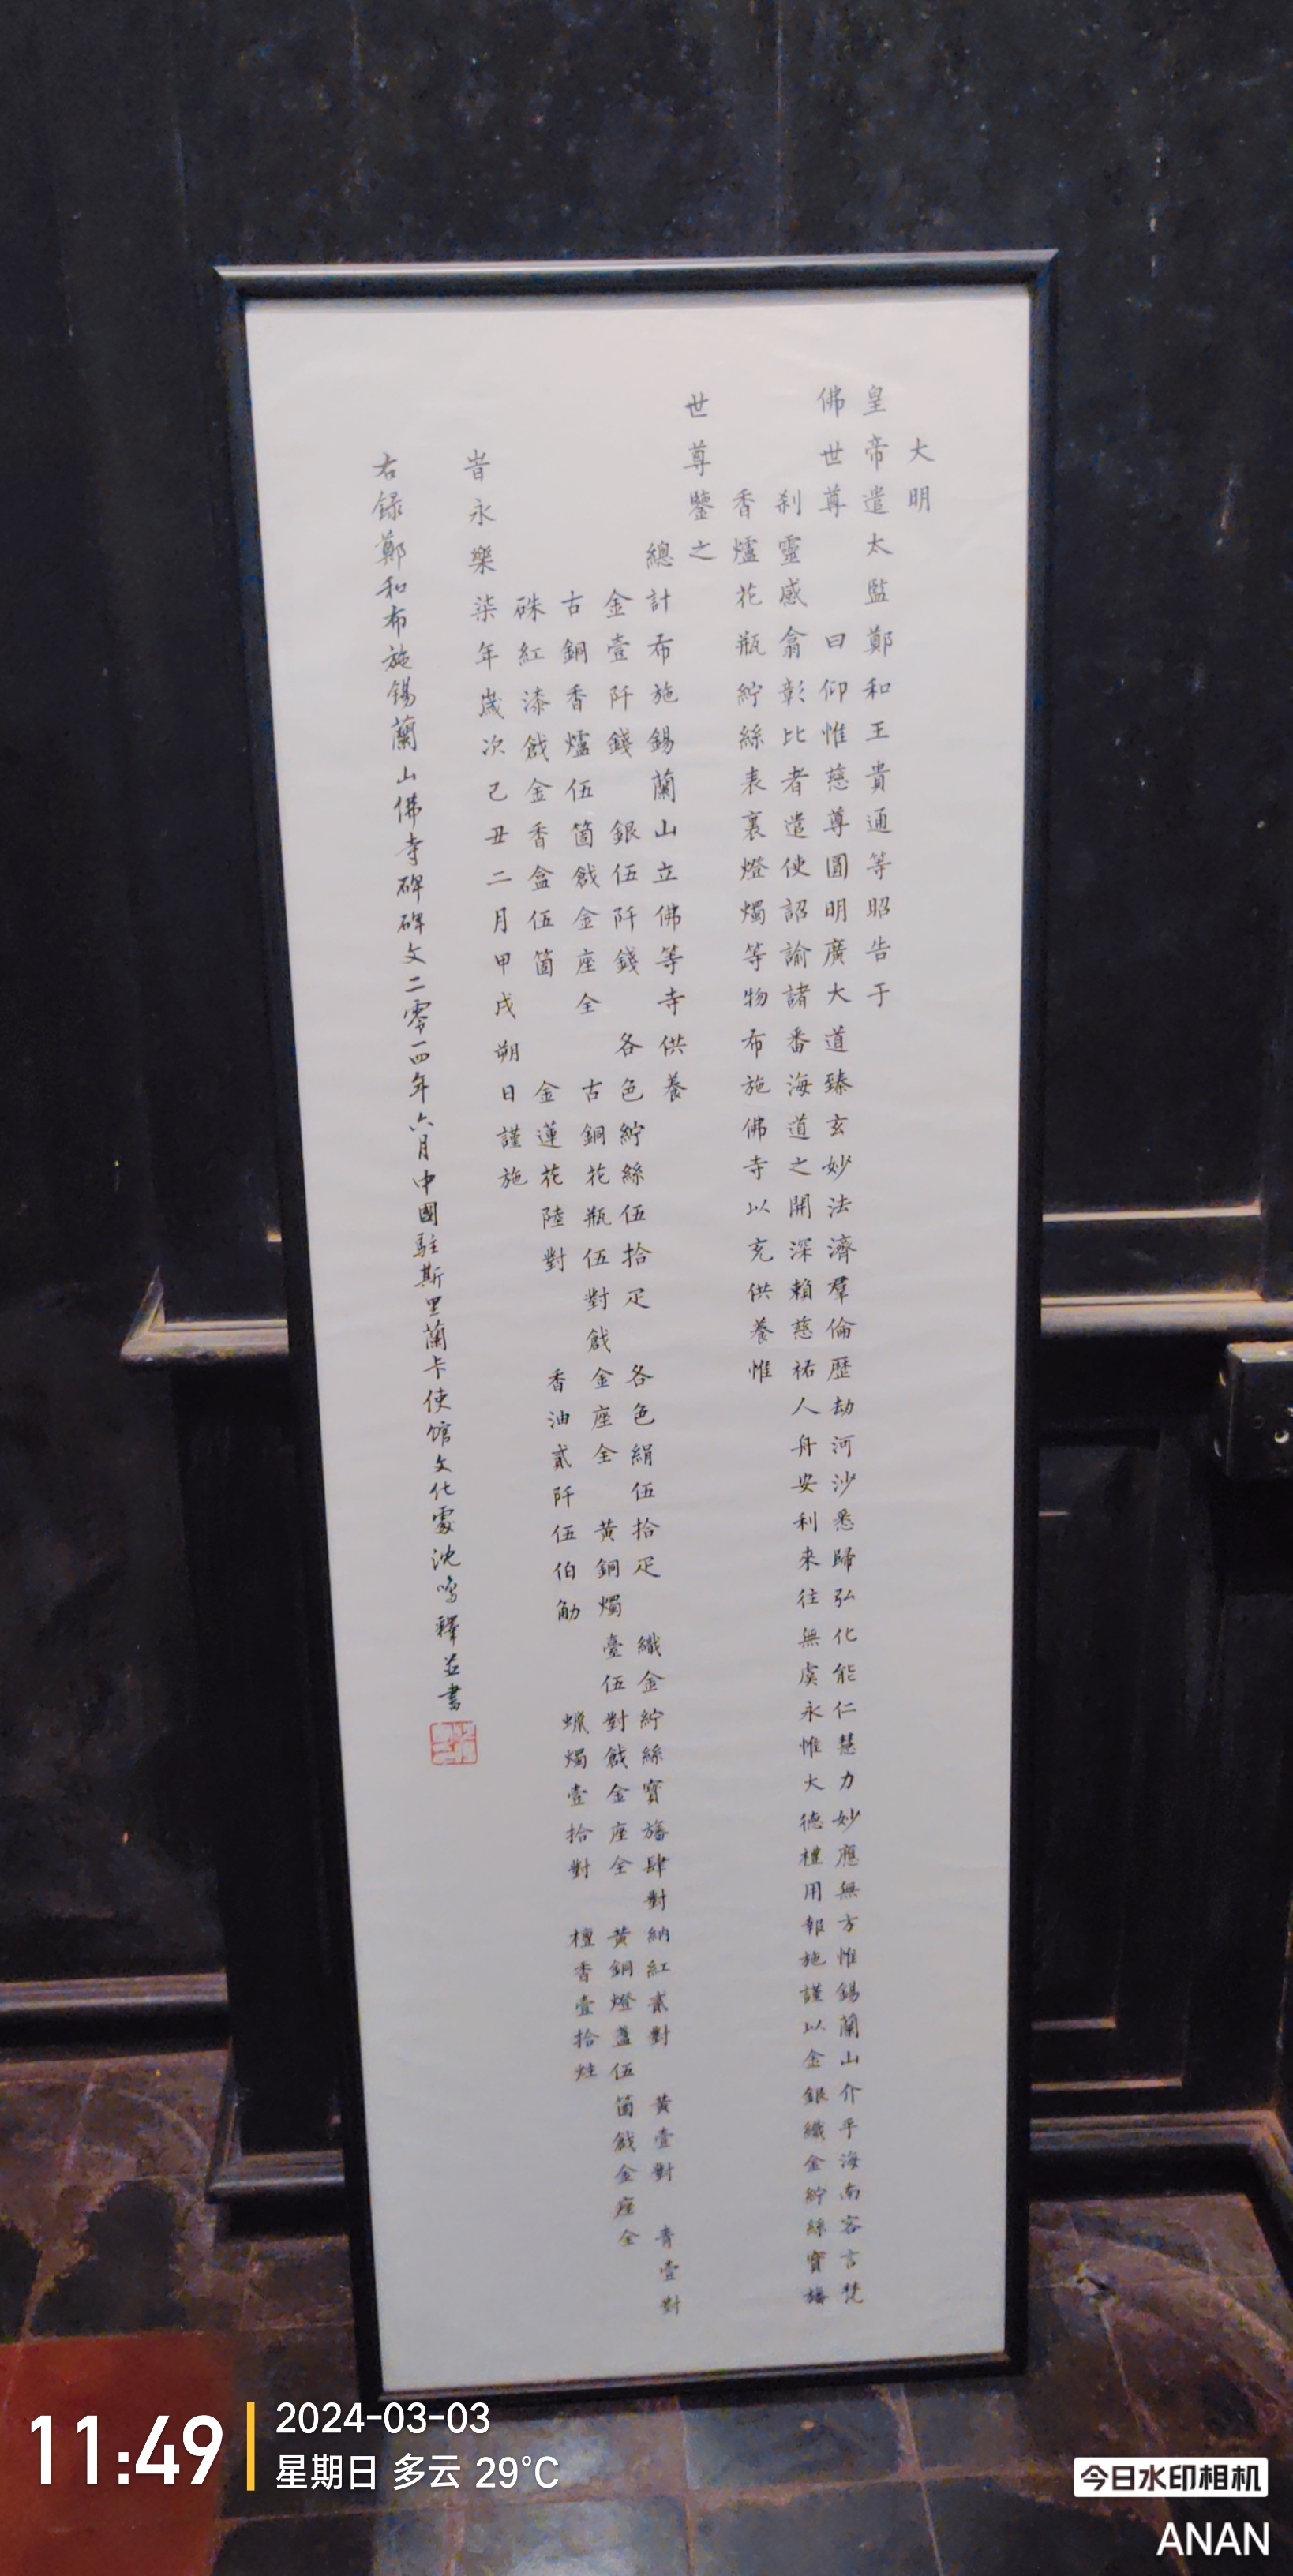 大明
皇帝遣太監鄭和王貴通等昭告于
佛世尊 曰仰惟慈尊圓明廣大道臻玄妙法濟羣倫歷劫河沙悉歸弘化能仁慧力妙應無方惟錫蘭山介乎海南客言梵
刹靈感翕彰比者遣使詔諭諸番海道之開深賴慈祐人舟安利來往無虞永惟大德禮用報施謹以金銀織金紵絲寶旛
香爐花瓶紵絲表裏燈燭等物布施佛寺以充供養惟
世尊鑒之
總計布施錫蘭山立佛等寺供養
金壹阡錢 銀伍阡錢 各色紵絲伍拾疋 各色絹伍拾疋 織金紵絲寶旛肆對 納紅貳對 黃壹對 青壹對
古銅香爐伍箇戧金座全 古銅花瓶伍對戧金座全 黃銅燭臺伍對戧金座全 黃銅燈盞伍箇戧金座全
硃紅漆戧金香盒伍箇 金蓮花陸對 香油貳阡伍伯觔 蠟燭壹拾對 檀香壹拾炷
旹永樂柒年歲次己丑二月甲戌朔日謹施
右録鄭和布施錫蘭山佛寺碑碑文二零一四年六月中國駐斯里蘭卡使馆文化處沈鸣釋並書
11:49
2024-03-03
星期日 多云 29°C
今日水印相机
ANAN